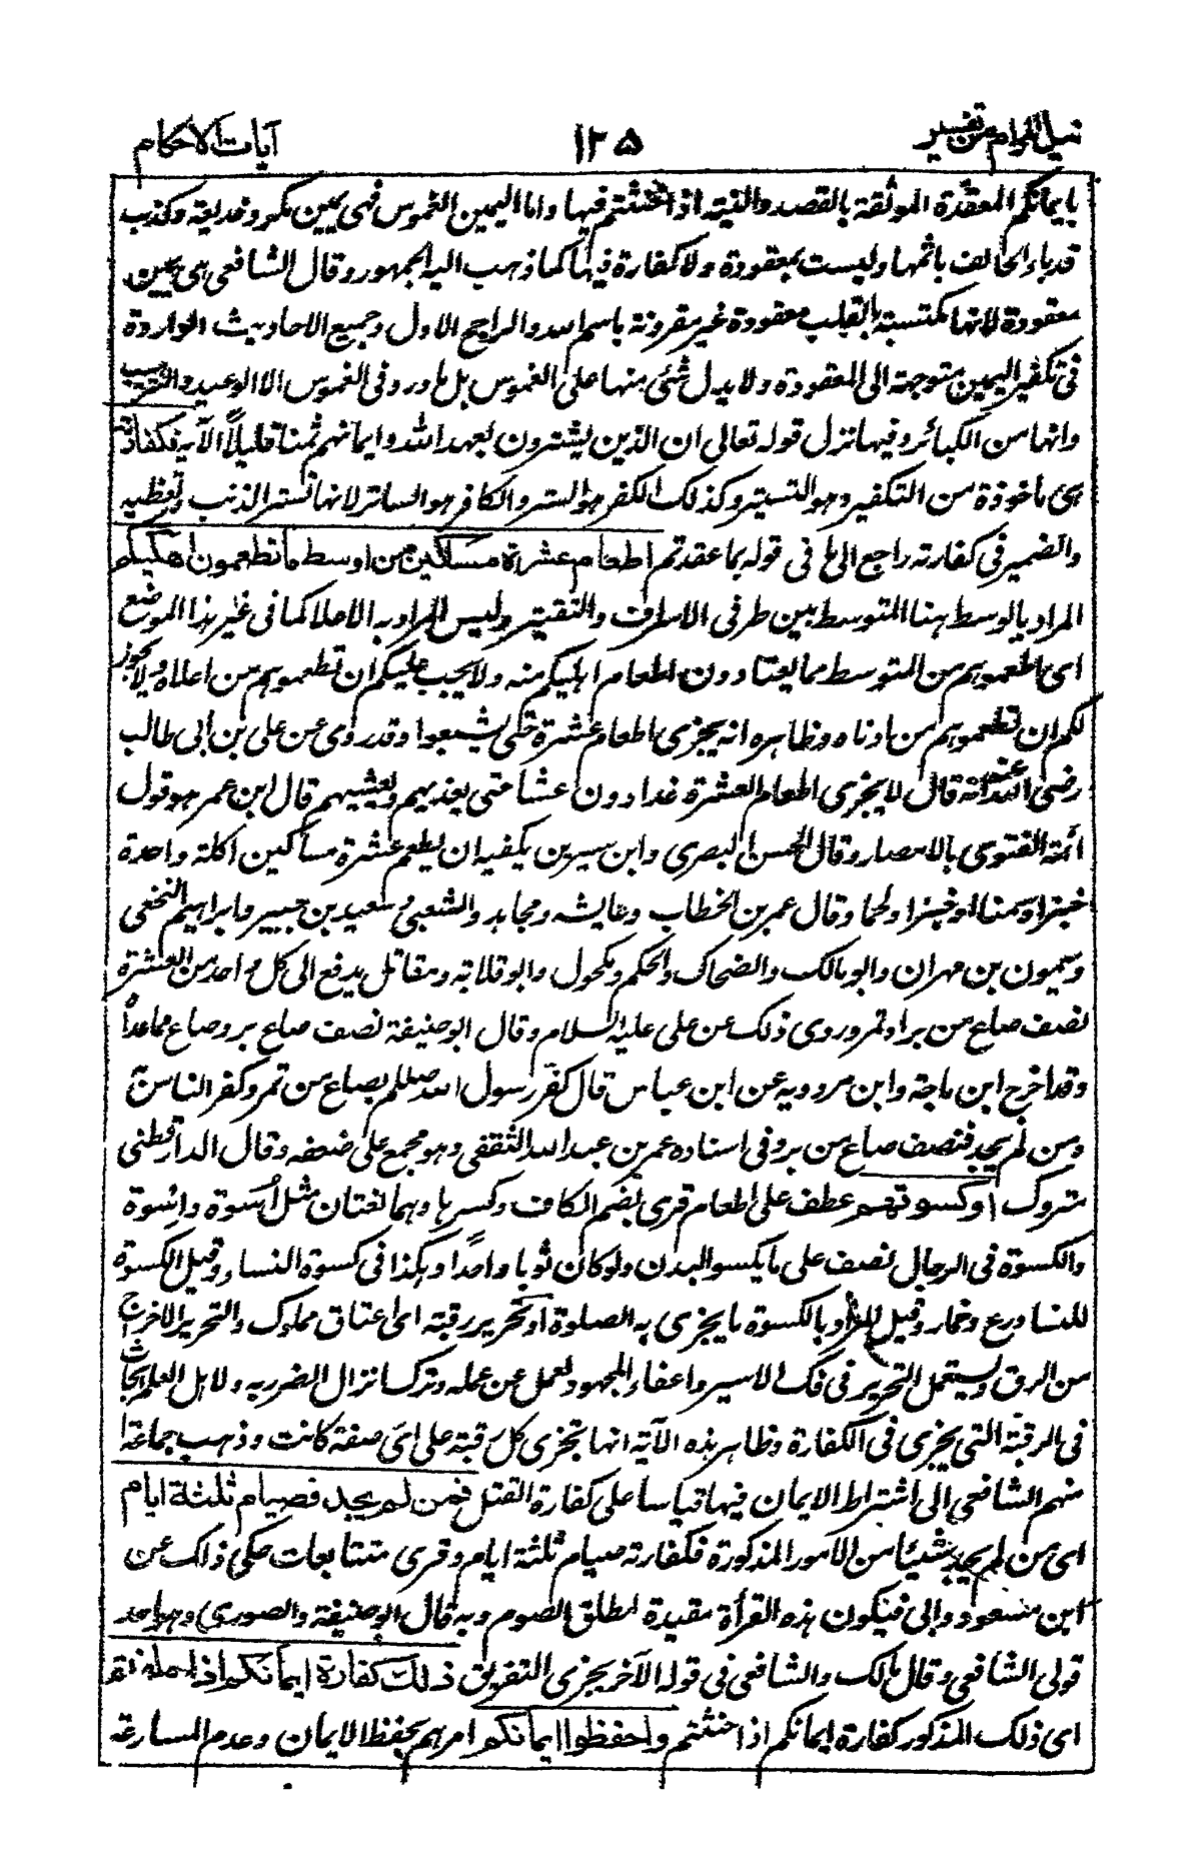 نيل المرام من تفسير ١٢٥ آيات الاحكام
بايمانكم المعقدة الموثقة بالقصد والنية اذا حنثتم فيها واما اليمين الغموس فهى يمين مكر وخديعة وكذب
قد باء الحالف باثمها وليست بمعقودة ولا كفارة فيها كما ذهب اليه الجمهور وقال الشافعى هى يمين
معقودة لانها مكتسبة بالقلب معقودة غير مقرونة باسم الله والراجح الاول وجميع الاحاديث الواردة
فى تكفير اليمين متوجهة الى المعقودة ولا يدل شئ منها على الغموس بل ما ورد فى الغموس الا الوعيد والترهيب
وانها من الكبائر وفيها نزل قوله تعالى ان الذين يشترون بعهد الله وايمانهم ثمنا قليلاً الآية فكفارته
هى ماخوذة من التكفير وهو التستير وكذلك الكفر هو الستر والكافر هو الساتر لانها تستر الذنب وتغطيه
والضمير فى كفارته راجع الى ما فى قوله بما عقدتم اطعام عشرة مساكين من اوسط ما تطعمون اهليكم
المراد بالوسط هنا المتوسط بين طرفى الاسراف والتقتير وليس المراد به الاعلا كما فى غير هذا الموضع
اى اطعموهم من المتوسط مما يعتادون اطعام اهليكم منه ولا يجب عليكم ان تطعموهم من اعلاه ولا يجوز
لكم ان تطعموهم من ادناه وظاهره انه يجزى اطعام عشرة حتى يشبعوا وقد روى عن على بن ابى طالب
رضى الله عنه انه قال لا يجزى اطعام العشرة غداء دون عشاء حتى يغديهم ويعشيهم قال ابن عمر هو قول
ائمة الفتوى بالامصار وقال الحسن البصرى وابن سيرين يكفيه ان يطعم عشرة مساكين اكلة واحدة
خبزا وسمنا او خبزا ولحما وقال عمر بن الخطاب وعايشه ومجاهد والشعبى وسعيد بن جبير وابراهيم النخعى
وميمون بن مهران وابو مالك والضحاك والحكم ومكحول وابو قلابة ومقاتل يدفع الى كل واحد من العشرة
نصف صاع من بر او تمر وروى ذلك عن على عليه السلام وقال ابو حنيفة نصف صاع بر وصاع مما عداه
وقد اخرج ابن ماجة وابن مردويه عن ابن عباس قال كفّر رسول الله صللم بصاع من تمر وكفر الناس به
ومن لم يجد فنصف صاع من بر وفى اسناده عمر بن عبد الله الثقفى وهو مجمع على ضعفه وقال الدارقطنى
متروك او كسوتهم عطف على اطعام قرى بضم الكاف وكسرها وهما لغتان مثل أسوة واِسوة
والكسوة فى الرجال نصف على ما يكسو البدن ولو كان ثوبا واحدًا وهكذا فى كسوة النساء وقيل الكسوة
للنساء درع وخمار وقيل المراد بالكسوة ما يجزى به الصلوة او تحرير رقبة اى اعتاق مملوك والتحرير الاخراج
من الرق ويستعمل التحرير فى فك الاسير واعفاء المجهود لعمل عن عمله وترك انزال الضرر به ولاهل العلم ابحاث
فى الرقبة التى يجزى فى الكفارة وظاهر هذه الآية انها تجزى كل رقبة على اى صفة كانت وذهب جماعة
منهم الشافعى الى اشتراط الايمان فيها قياسا على كفارة القتل فمن لم يجد فصيام ثلثة ايام
اى من لم يجد شيئا من الامور المذكورة فكفارته صيام ثلثة ايام وقرى متتابعات حكى ذلك عن
ابن مسعود وابى فيكون هذه القرأة مقيدة لمطلق الصوم وبه قال ابو حنيفة والصورى وهو احد
قولى الشافعى وقال مالك والشافعى فى قوله الآخر يجزى التفريق ذلك كفارة ايمانكم اذا حلفتم
اى ذلك المذكور كفارة ايمانكم اذا حنثتم واحفظوا ايمانكم امرهم بحفظ الايمان وعدم المسارعة